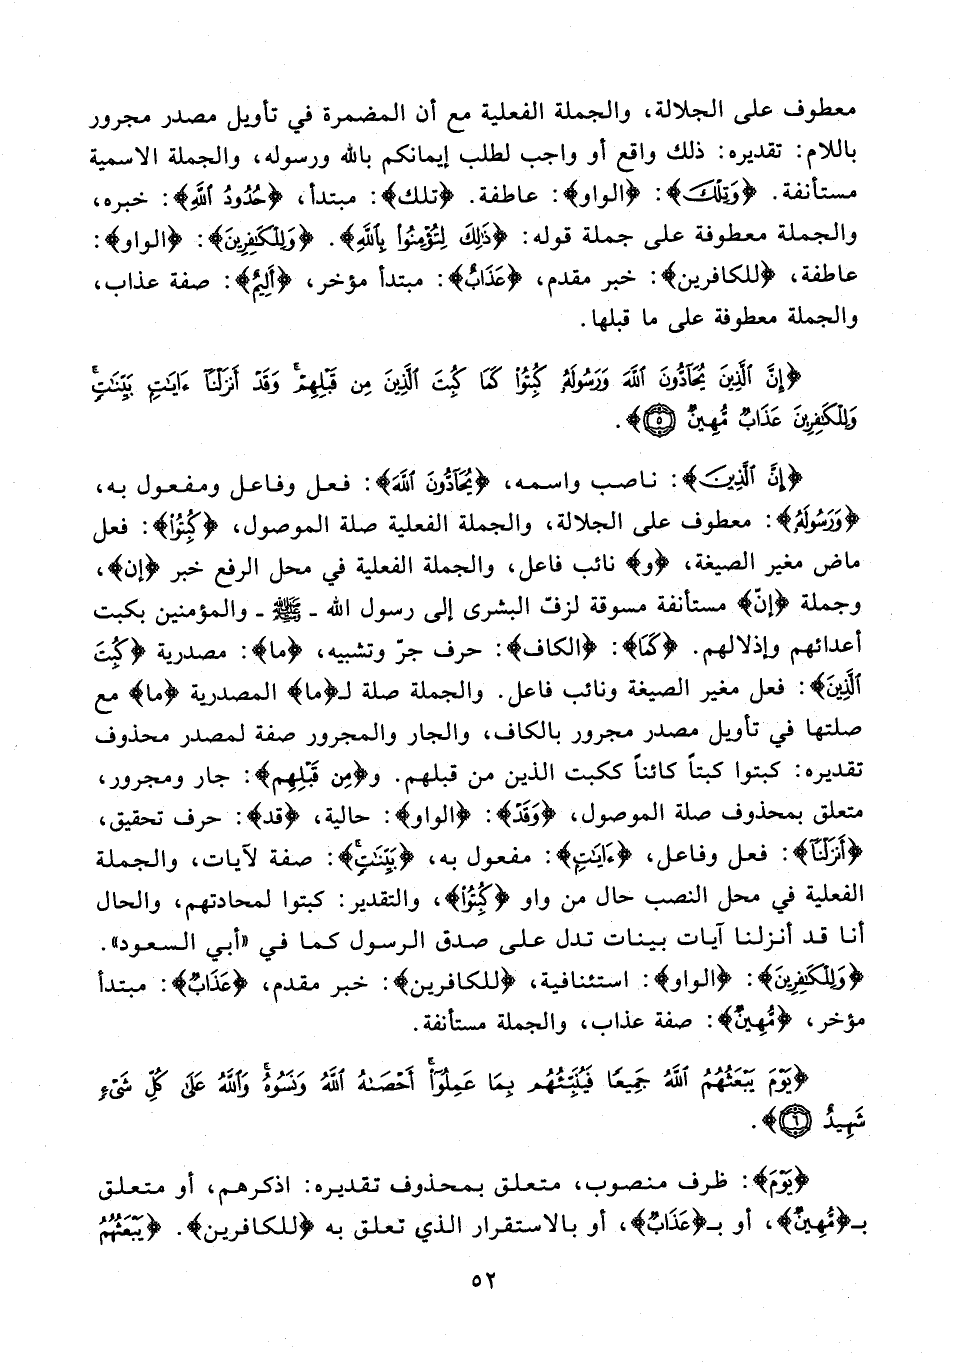 معطوف على الجلالة، والجملة الفعلية مع أن المضمرة في تأويل مصدر مجرور
باللام: تقديره: ذلك واقع أو واجب لطلب إيمانكم بالله ورسوله، والجملة الاسمية
مستأنفة. ﴿وَتِلْكَ﴾: ﴿الواو﴾: عاطفة. ﴿تلك﴾: مبتدأ، ﴿حُدُودُ ٱللَّهِ﴾: خبره،
والجملة معطوفة على جملة قوله: ﴿ذَٰلِكَ لِتُؤْمِنُوا۟ بِٱللَّهِ﴾. ﴿وَلِلْكَٰفِرِينَ﴾: ﴿الواو﴾:
عاطفة، ﴿للكافرين﴾: خبر مقدم، ﴿عَذَابٌ﴾: مبتدأ مؤخر، ﴿أَلِيمٌ﴾: صفة عذاب،
والجملة معطوفة على ما قبلها.
﴿إِنَّ ٱلَّذِينَ يُحَآدُّونَ ٱللَّهَ وَرَسُولَهُۥ كُبِتُوا۟ كَمَا كُبِتَ ٱلَّذِينَ مِن قَبْلِهِمْ ۚ وَقَدْ أَنزَلْنَآ ءَايَٰتٍۭ بَيِّنَٰتٍ ۚ
وَلِلْكَٰفِرِينَ عَذَابٌ مُّهِينٌ ٥﴾.
﴿إِنَّ ٱلَّذِينَ﴾: ناصب واسمه، ﴿يُحَآدُّونَ ٱللَّهَ﴾: فعل وفاعل ومفعول به،
﴿وَرَسُولَهُۥ﴾: معطوف على الجلالة، والجملة الفعلية صلة الموصول، ﴿كُبِتُوا۟﴾: فعل
ماض مغير الصيغة، ﴿و﴾ نائب فاعل، والجملة الفعلية في محل الرفع خبر ﴿إن﴾،
وجملة ﴿إنّ﴾ مستأنفة مسوقة لزفّ البشرى إلى رسول الله ـ ﷺ ـ والمؤمنين بكبت
أعدائهم وإذلالهم. ﴿كَمَا﴾: ﴿الكاف﴾: حرف جرّ وتشبيه، ﴿ما﴾: مصدرية ﴿كُبِتَ
ٱلَّذِينَ﴾: فعل مغير الصيغة ونائب فاعل. والجملة صلة لـ﴿ما﴾ المصدرية ﴿ما﴾ مع
صلتها في تأويل مصدر مجرور بالكاف، والجار والمجرور صفة لمصدر محذوف
تقديره: كبتوا كبتاً كائناً ككبت الذين من قبلهم. و﴿مِن قَبْلِهِم﴾: جار ومجرور،
متعلق بمحذوف صلة الموصول، ﴿وَقَدْ﴾: ﴿الواو﴾: حالية، ﴿قد﴾: حرف تحقيق،
﴿أَنزَلْنَآ﴾: فعل وفاعل، ﴿ءَايَٰتٍۭ﴾: مفعول به، ﴿بَيِّنَٰتٍ ۚ﴾: صفة لآيات، والجملة
الفعلية في محل النصب حال من واو ﴿كُبِتُوا۟﴾، والتقدير: كبتوا لمحادتهم، والحال
أنا قد أنزلنا آيات بينات تدل على صدق الرسول كما في «أبي السعود».
﴿وَلِلْكَٰفِرِينَ﴾: ﴿الواو﴾: استئنافية، ﴿للكافرين﴾: خبر مقدم، ﴿عَذَابٌ﴾: مبتدأ
مؤخر، ﴿مُّهِينٌ﴾: صفة عذاب، والجملة مستأنفة.
﴿يَوْمَ يَبْعَثُهُمُ ٱللَّهُ جَمِيعًا فَيُنَبِّئُهُم بِمَا عَمِلُوٓا۟ ۚ أَحْصَىٰهُ ٱللَّهُ وَنَسُوهُ ۚ وَٱللَّهُ عَلَىٰ كُلِّ شَىْءٍ
شَهِيدٌ ٦﴾.
﴿يَوْمَ﴾: ظرف منصوب، متعلق بمحذوف تقديره: اذكرهم، أو متعلق
بـ﴿مُّهِينٌ﴾، أو بـ﴿عَذَابٌ﴾، أو بالاستقرار الذي تعلق به ﴿للكافرين﴾. ﴿يَبْعَثُهُمُ
٥٢